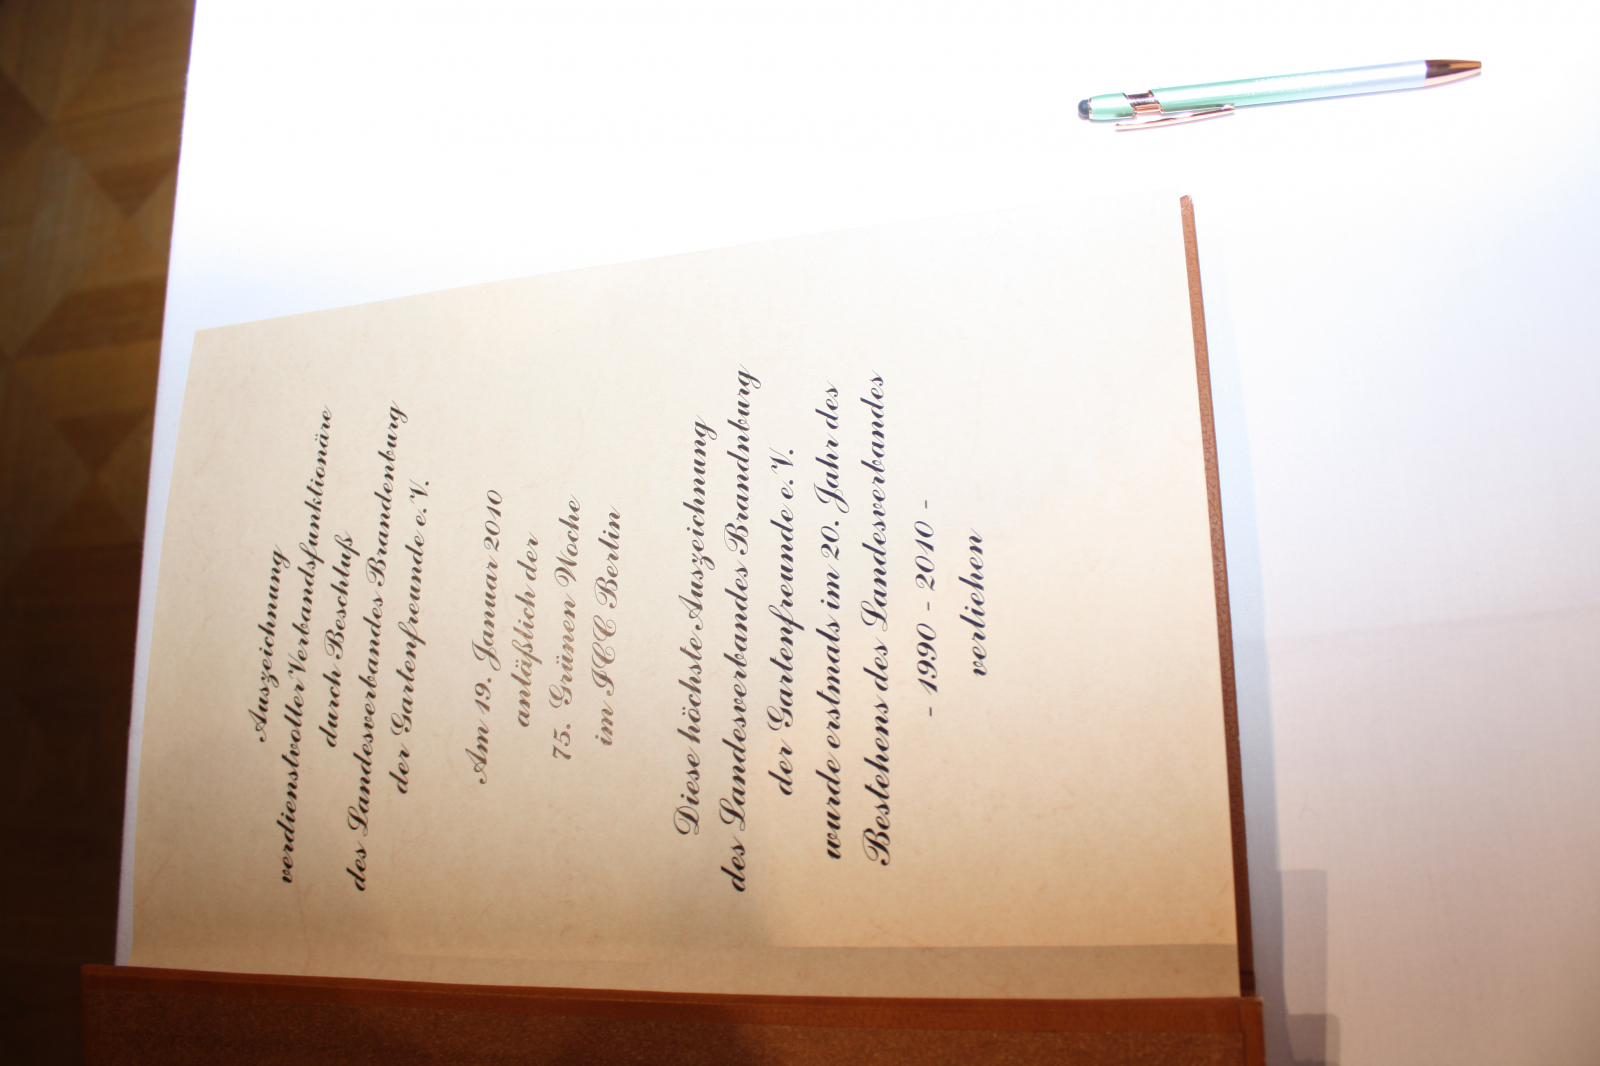 Auszeichnung
verdienstvoller Verbandsfunktionäre
durch Beschluß
des Landesverbandes Brandenburg
der Gartenfreunde e.V.
Am 19. Januar 2010
anläßlich der
75. Grünen Woche
im ICC Berlin
Diese höchste Auszeichnung
des Landesverbandes Brandnburg
der Gartenfreunde e.V.
wurde erstmals im 20. Jahr des
Bestehens des Landesverbandes
- 1990 - 2010 -
verliehen